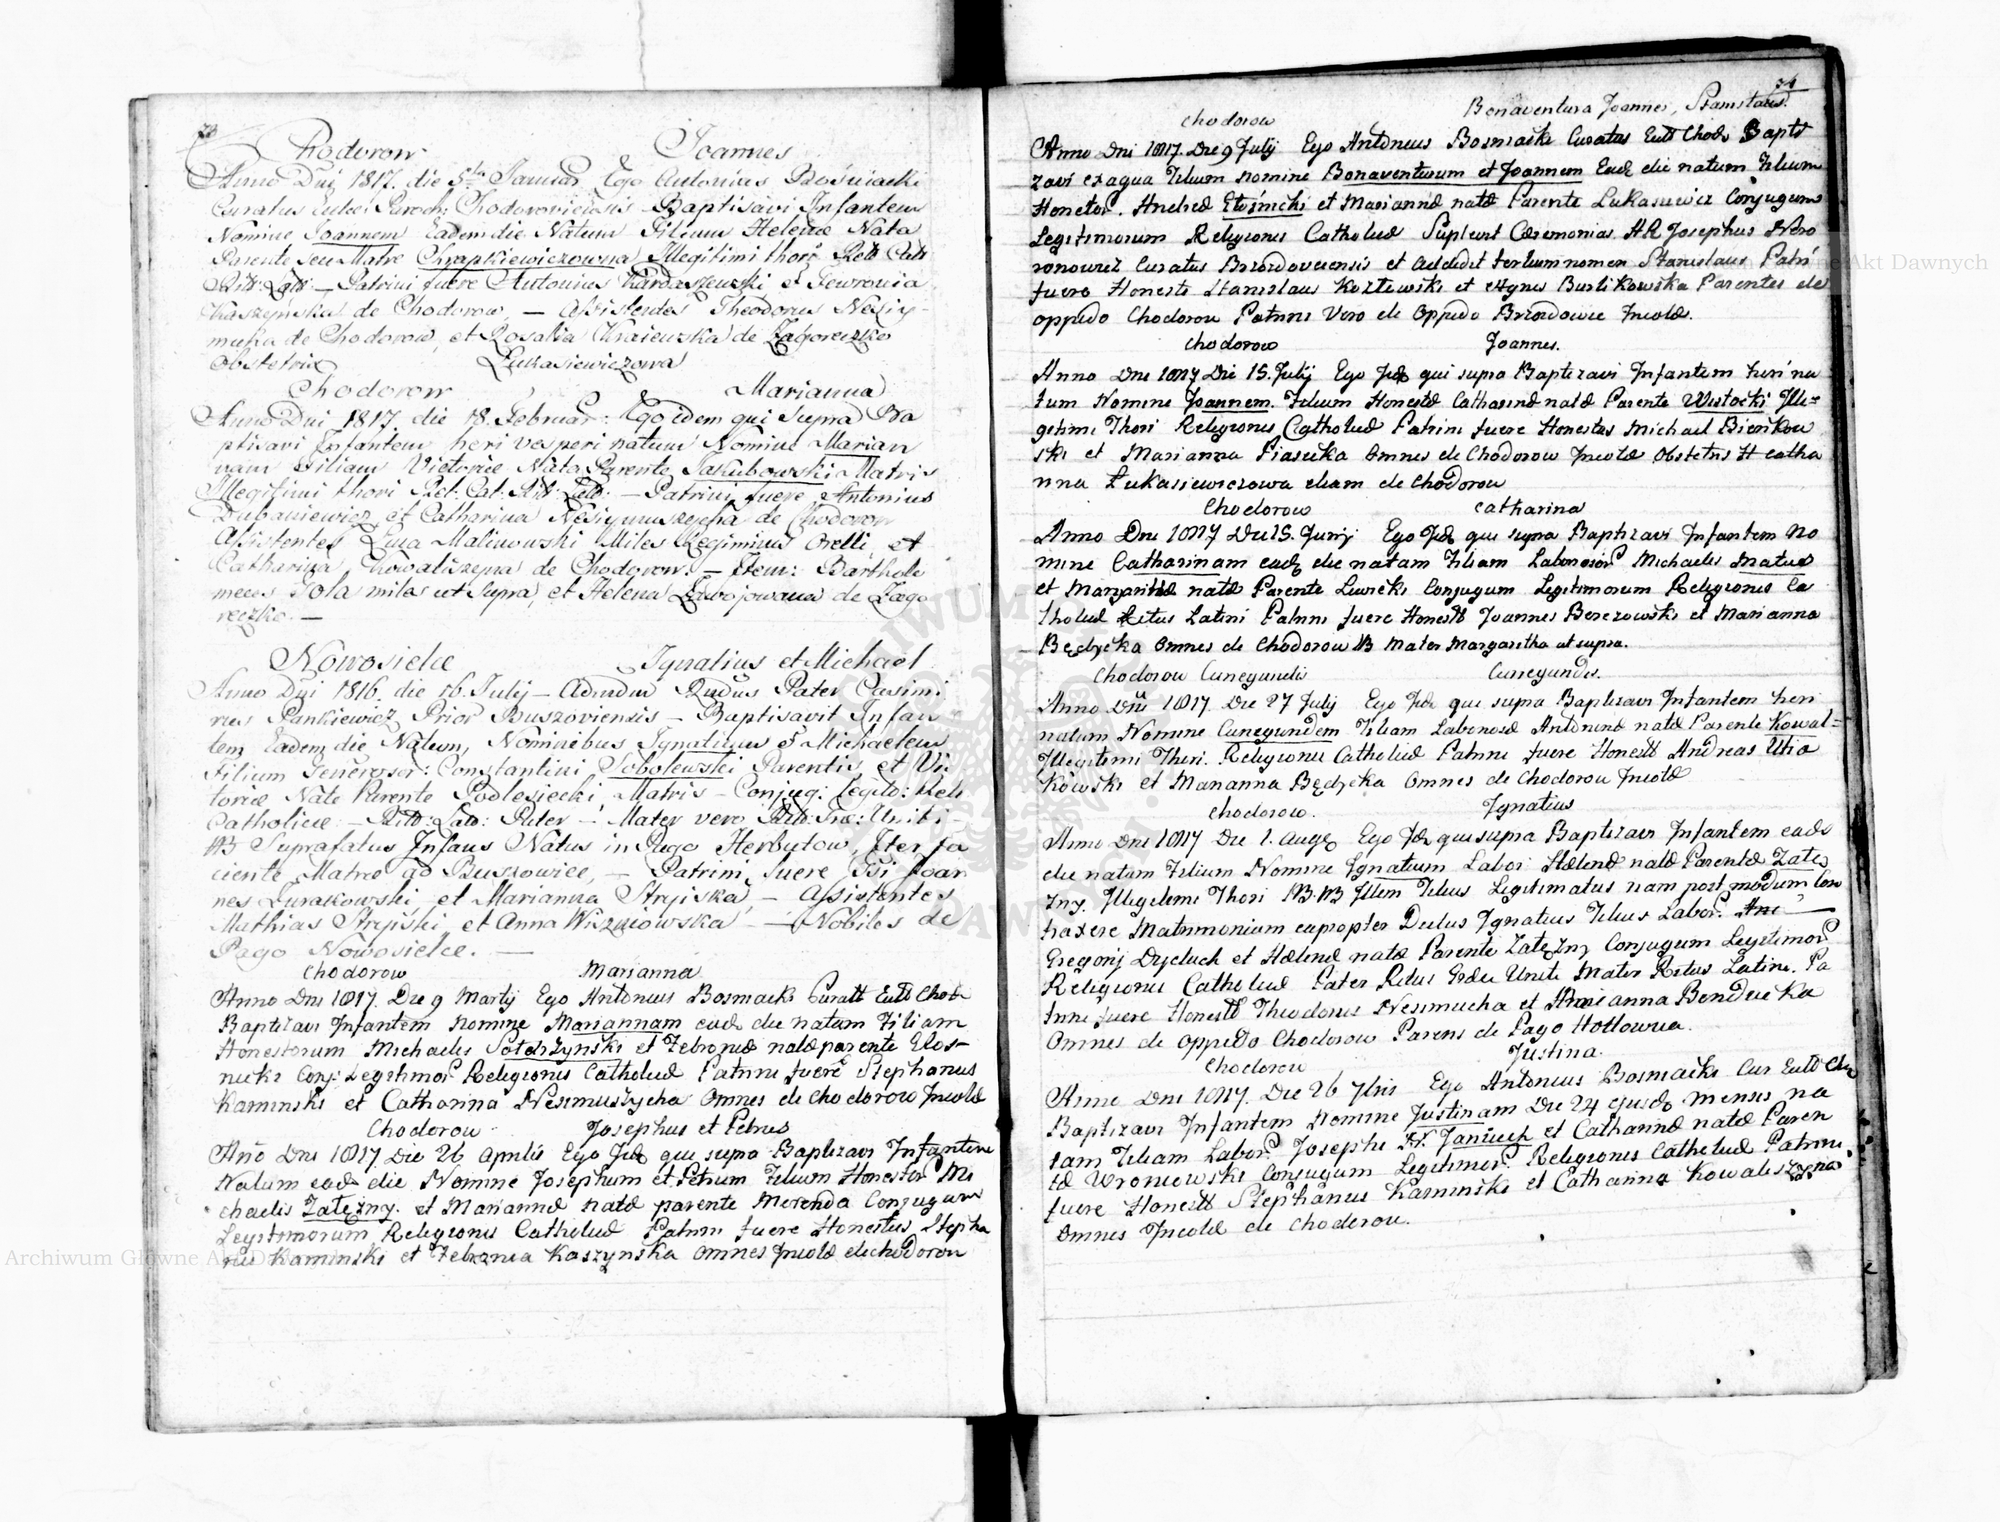 Chodorow Joannes
Anno Dni 1817. die 5ta Januar Ego Antonius Bośniacki
Curatus Eccles: Paroch: Chodoroviensis Baptisavi Infantem
Nomine Joannem Eadem die Natum Filium Helenæ Nata
Parente seu Matre Chrapkiewiczowna Illegitimi thori Reli: Cath:
Rit: Lat: — Patrini fuere Antonius Kardaszewski et Fewronia
Kaszyńska de Chodorow, — Assistentes Theodorus Nesiy-
mucha de Chodorow, et Rosalia Kraiewska de Zagoreczko
Obstetrix Łukasiewiczowa
Chodorow Marianna
Anno Dni 1817. die 18. Februar: Ego idem qui supra Ba
ptisavi Infantem heri vesperi natum Nomine Marian
nam Filiam Victoriæ Nata Parente Jakubowski Matris
Illegitimi thori Rel: Cat: Rit: Lat: — Patrini fuere Antonius
Dubaniewicz et Catharina Nesiymuszycha de Chodorow
Assistentes Luca Malinowski Miles Regiminis Orelli, et
Catharina Kowaliszyna de Chodorow. — Item: Bartholo
meus Sola miles ut supra, et Helena de Zago
reczko. —
Nowosielce Ignatius et Michael
Anno Dni 1816. die 16. Julij — Admdus Rndus Pater Casimi
rus Pankiewicz Prior Buszoviensis — Baptisavit Infan
tem Eadem die Natum, Nominibus Ignatium et Michaelem
Filium Generosor: Constantini Sobolewski Parentis, et Vic
toriæ Nate Parente Podlesiecki, Matris — Conjug: Legito: Reli
Catholicæ — Rito: Lato: Pater — Mater vero Rito: Græ: Uniti —
NB Suprafatus Infans Natus in Pago Herbutow, Iter fa
ciente Matre ad Buszowice, — Patrini fuere Gsi Joan
nes Zurakowski, et Marianna Stryiska, — Assistentes
Mathias Stryiski, et Anna Wiszniowska — Nobiles de
Pago Nowosielce. —
Chodorow Marianna
Anno Dni 1817. Die 9 Martij Ego Antonius Bosniacki Curatt Ecctæ Chod:
Baptizavi Infantem nomine Mariannam eade die natam Filiam
Honestorum Michaelis et Febroniæ natæ parente Elos-
nicki Conj: Legitimor Religionis Catholicæ Patrini fuere Stephanus
Kaminski et Catharina Nesimuszycha omnes de Chodorow Incolæ
Chodorow Josephus et Petrus
Año Dni 1817. Die 26 Aprilis Ego Jde qui supra Baptizavi Infantem
Natum eade die Nomine Josephum et Petrum Filium Honestor Mi
chaelis Zatęzny. et Mariannæ natæ parente Merenda Conjugum
Legitimorum Religionis Catholicæ Patrini fuere Honestus Stepha
nus Kaminski et Febronia Kaszynska omnes Incolæ de Chodorow
34
Chodorow Bonaventura Joannes, Stanislaus.
Anno Dni 1817. Die 9 Julij Ego Antonius Bosniacki Curatus Ecctæ Chodo Bapti
zavi ex aqua Filium nomine Bonaventurum et Joannem Eade die natum Filium
Honestor. Andreæ et Mariannæ natæ Parente Lukasiewicz Conjugum
Legitimorum Religionis Catholicæ Suplevit Cæremonias AR Josephus Wero
ronowicz Curatus Brzozdoviensis et addidit tertium nomen Stanislaus Patri
fuere Honesti Stanislaus Kozłowski et Agnes Burlikowska Parentes de
oppido Chodorow Patrini Vero de Oppido Brzozdowce Incolæ.
Chodorow Joannes.
Anno Dni 1817 Die 15. Julij Ego Jde qui supra Baptizavi Infantem heri na
tum Nomine Joannem. Filium Honestæ Catharinæ natæ Parente Wistocki Ille-
gitimi Thori Religionis Catholicæ Patrini fuere Honestus Michael Bienkow
ski et Marianna Piasecka omnes de Chodorow Incolæ Obstetrix H Catha
rina Łukasiewiczowa etiam de Chodorow
Chodorow Catharina
Anno Dni 1817 Die 15. Junij Ego Jde qui supra Baptizavi Infantem No
mine Catharinam eade die natam Filiam Laboriosor Michaelis Matus
et Margarithæ natæ Parente Lewicki Conjugum Legitimorum Religionis Ca
tholicæ Ritus Latini Patrini fuere Honesti Joannes Berezowski et Marianna
Będzcka omnes de Chodorow NB Mater Margaritha ut supra.
Chodorow Cunegundis Cunegundis.
Anno Dni 1817. Die 27 Julij Ego Jde qui supra Baptizavi Infantem heri
natam Nomine Cunegundem Filiam Laboriosæ Antoninæ natæ Parente Kowal-
Illegitimi Thori. Religionis Catholicæ Patrini fuere Honesti Andreas Utia
kowski et Marianna Będzcka omnes de Chodorow Incolæ
Chodorow. Ignatius
Anno Dni 1817 Die 1. Auge Ego Jde qui supra Baptizavi Infantem eade
die natum Filium Nomine Ignatium Labor: Hælenæ natæ Parente Zatę
zny. Illegitimi Thori NB. NB Illem Filius Legitimatus nam post modum con
traxere Matrimonium eapropter Dictus Ignatius Filius Labor.
Gregorij Dyduch et Hælenæ natæ Parente Zatęzny Conjugum Legitimor
Religionis Catholicæ Pater Ritus Græci Uniti Mater Ritus Latini. Pa
trini fuere Honesti Theodorus Nesimucha et Marianna Bondurka
Omnes de Oppido Chodorow Parens de Pago Hołłownia.
Chodorow Justina.
Anno Dni 1817. Die 26 7bris Ego Antonius Bosniacki Cur Ecctæ Cho
Baptizavi Infantem Nomine Justinam Die 24 ejusde mensis na
tam Filiam Labor. Josephi Janiuck et Catharinæ natæ Paren
te Wroniewski Conjugum Legitimor. Religionis Catholicæ Patrini
fuere Honesti Stephanus Kaminski et Catharina Kowaliszyna
Omnes Incolæ de Chodorow.